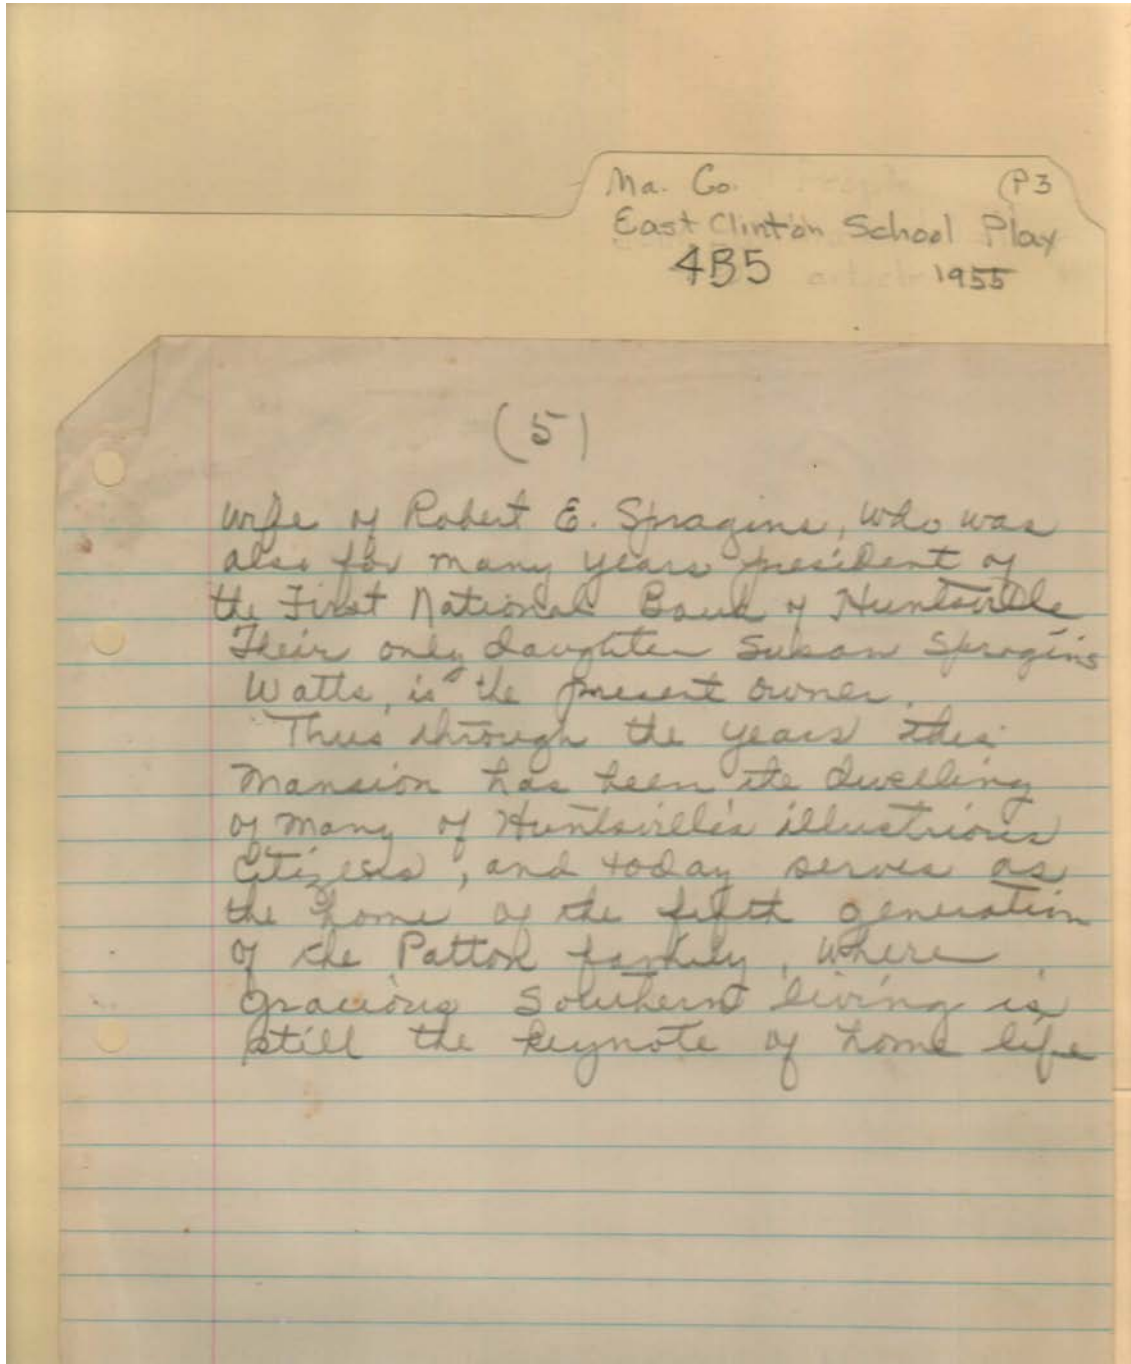 Ma. Co. P3
East Clinton School Play
4B5 1955
(5)
wife of Robert E. Spragins, who was
also for many years president of
the First National Bank of Huntsville
Their only daughter Susan Spragins
Watts, is the present owner.
Thus through the years this
mansion has been the dwelling
of many of Huntsville's illustrious
Citizens, and today serves as
the home of the fifth generation
of the Patton family, where
gracious Southern living is
still the keynote of home life